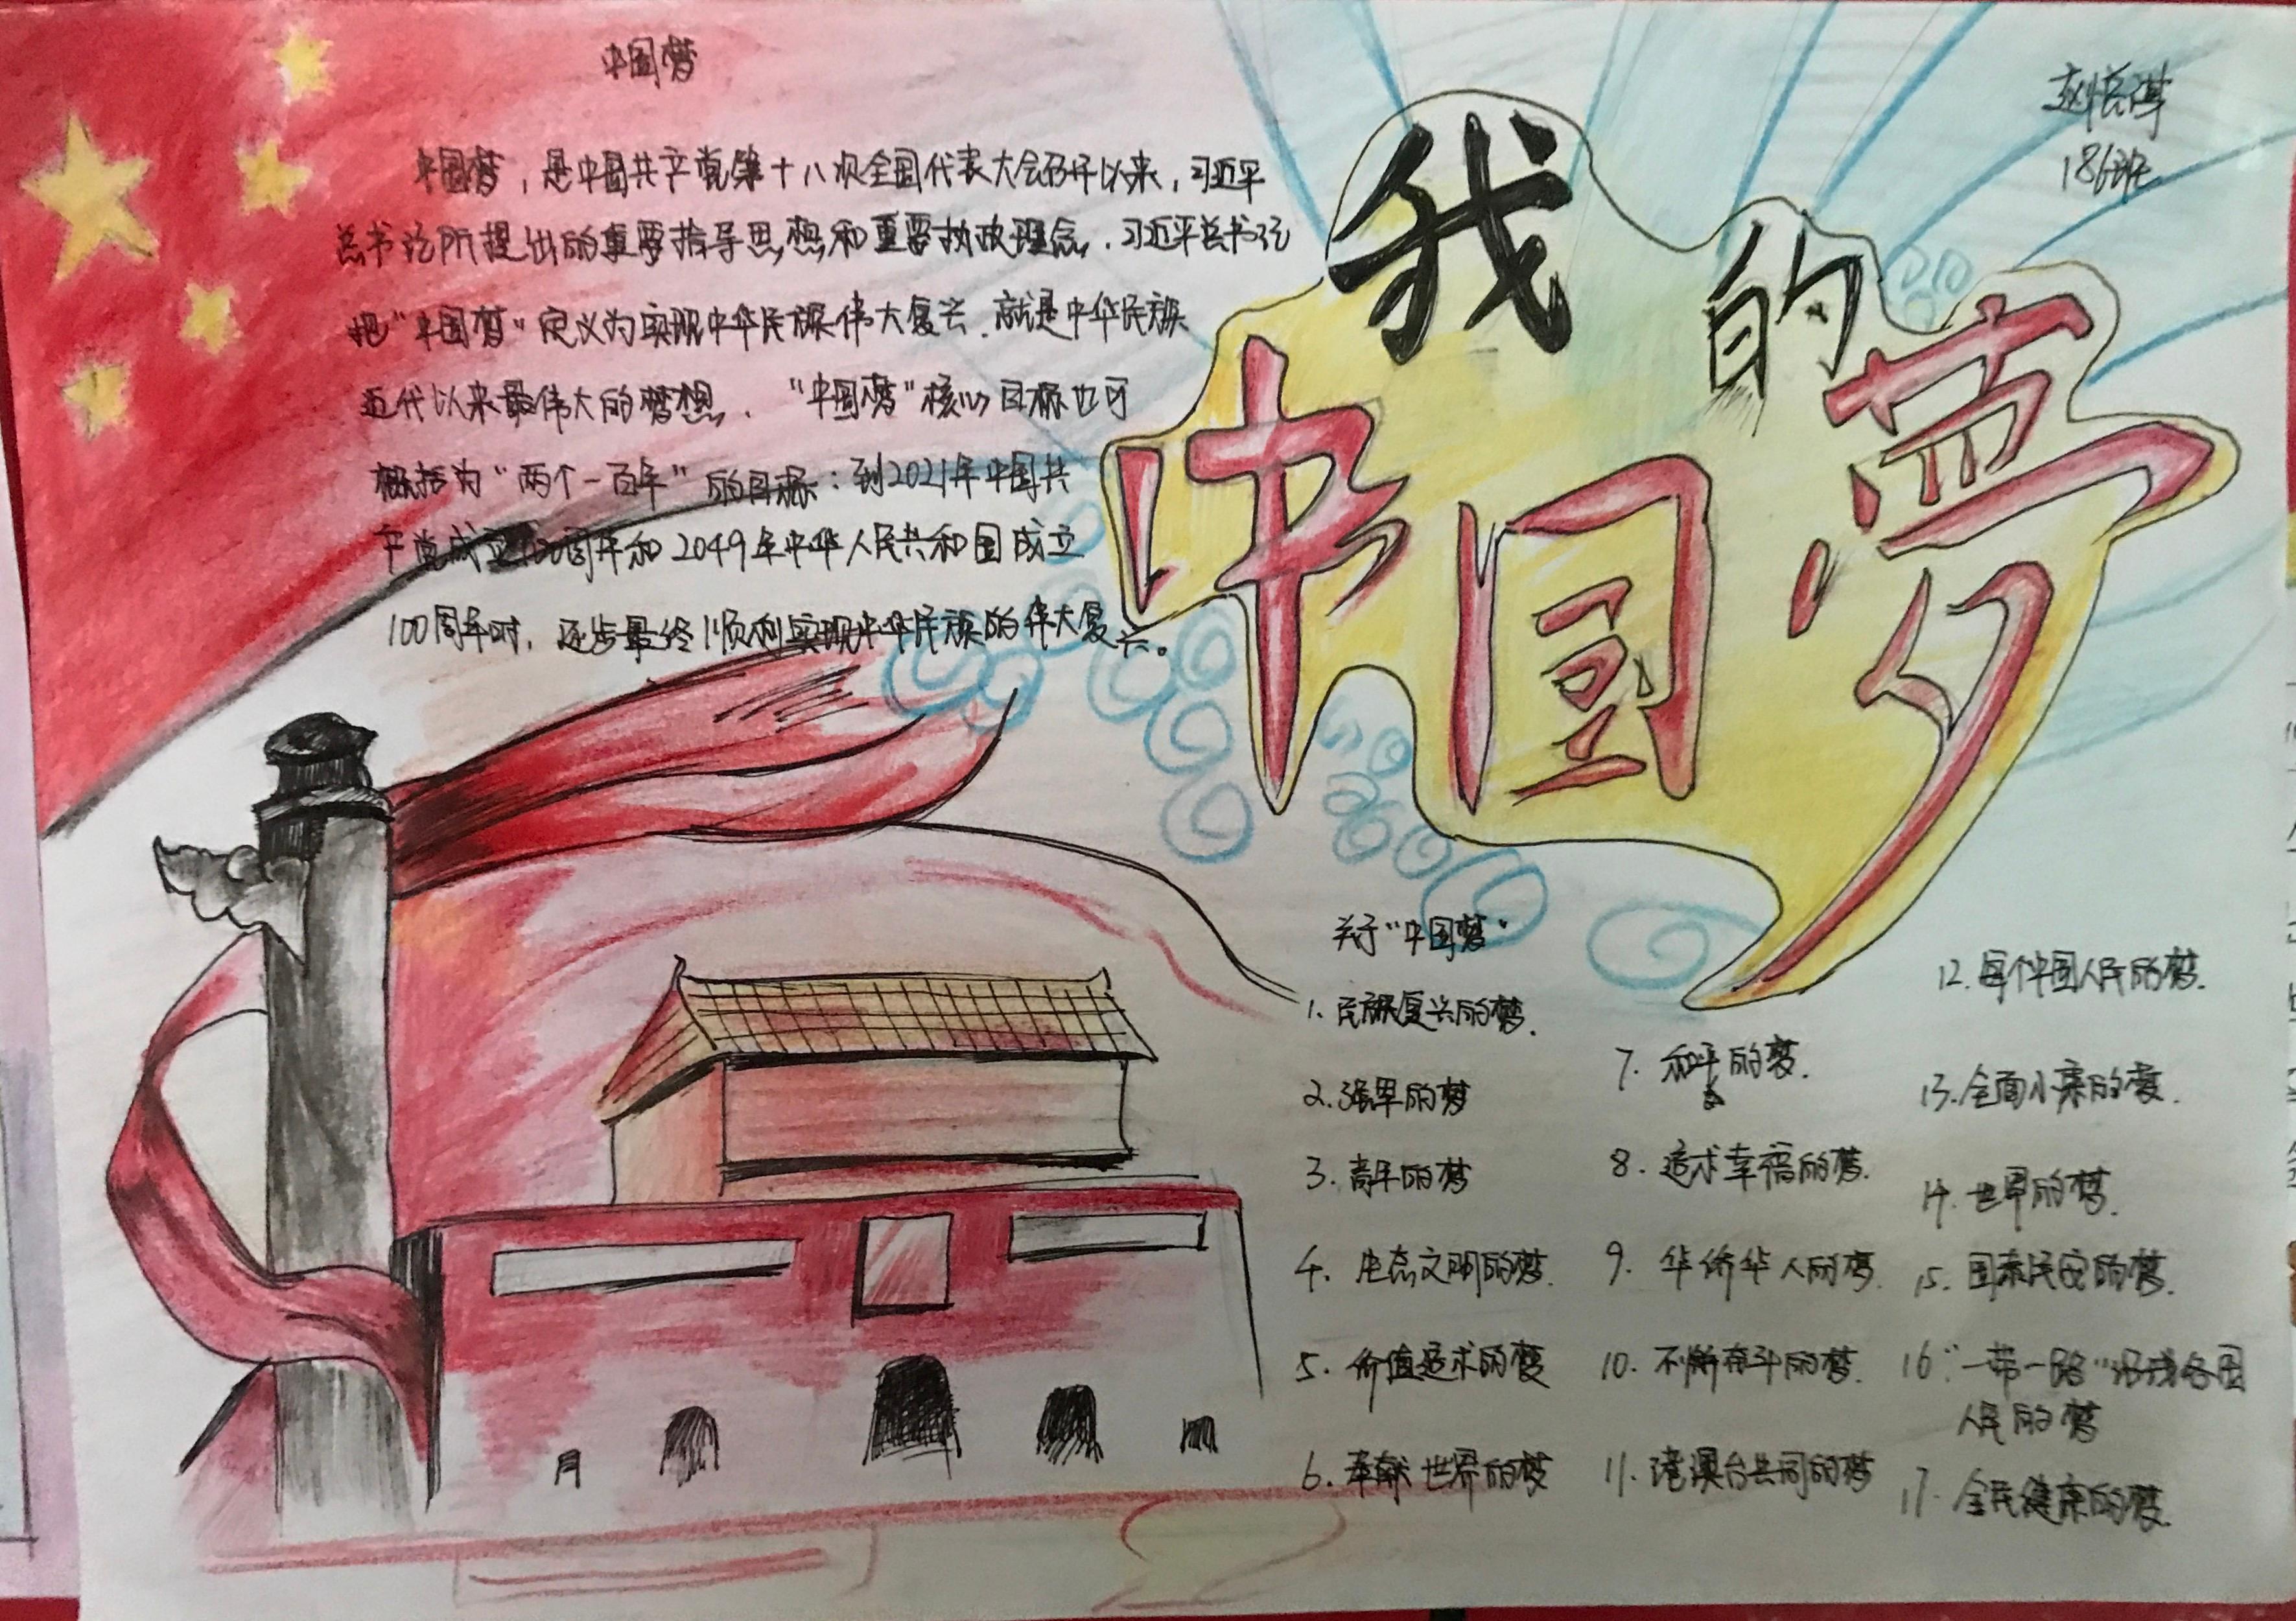 中国梦
中国梦，是中国共产党第十八次全国代表大会召开以来，习近平
总书记所提出的重要指导思想和重要执政理念，习近平总书记
把“中国梦”定义为实现中华民族伟大复兴，就是中华民族
近代以来最伟大的梦想，“中国梦”核心目标也可
概括为“两个一百年”的目标：到2021年中国共
产党成立100周年和2049年中华人民共和国成立
100周年时，逐步最终顺利实现中华民族的伟大复兴。
我的
中国夢
赵
186班
关于“中国梦”
1. 民族复兴的梦.
2. 强军的梦
3. 青年的梦
4. 生态文明的梦.
5. 价值追求的梦
6. 奉献世界的梦
7. 和平的梦.
8. 追求幸福的梦.
9. 华侨华人的梦.
10. 不断奋斗的梦.
11. 港澳台共同的梦
12. 每个中国人民的梦.
13. 全面小康的梦.
14. 世界的梦.
15. 国泰民安的梦.
16. “一带一路”沿线各国
人民的梦
17. 全民健康的梦.